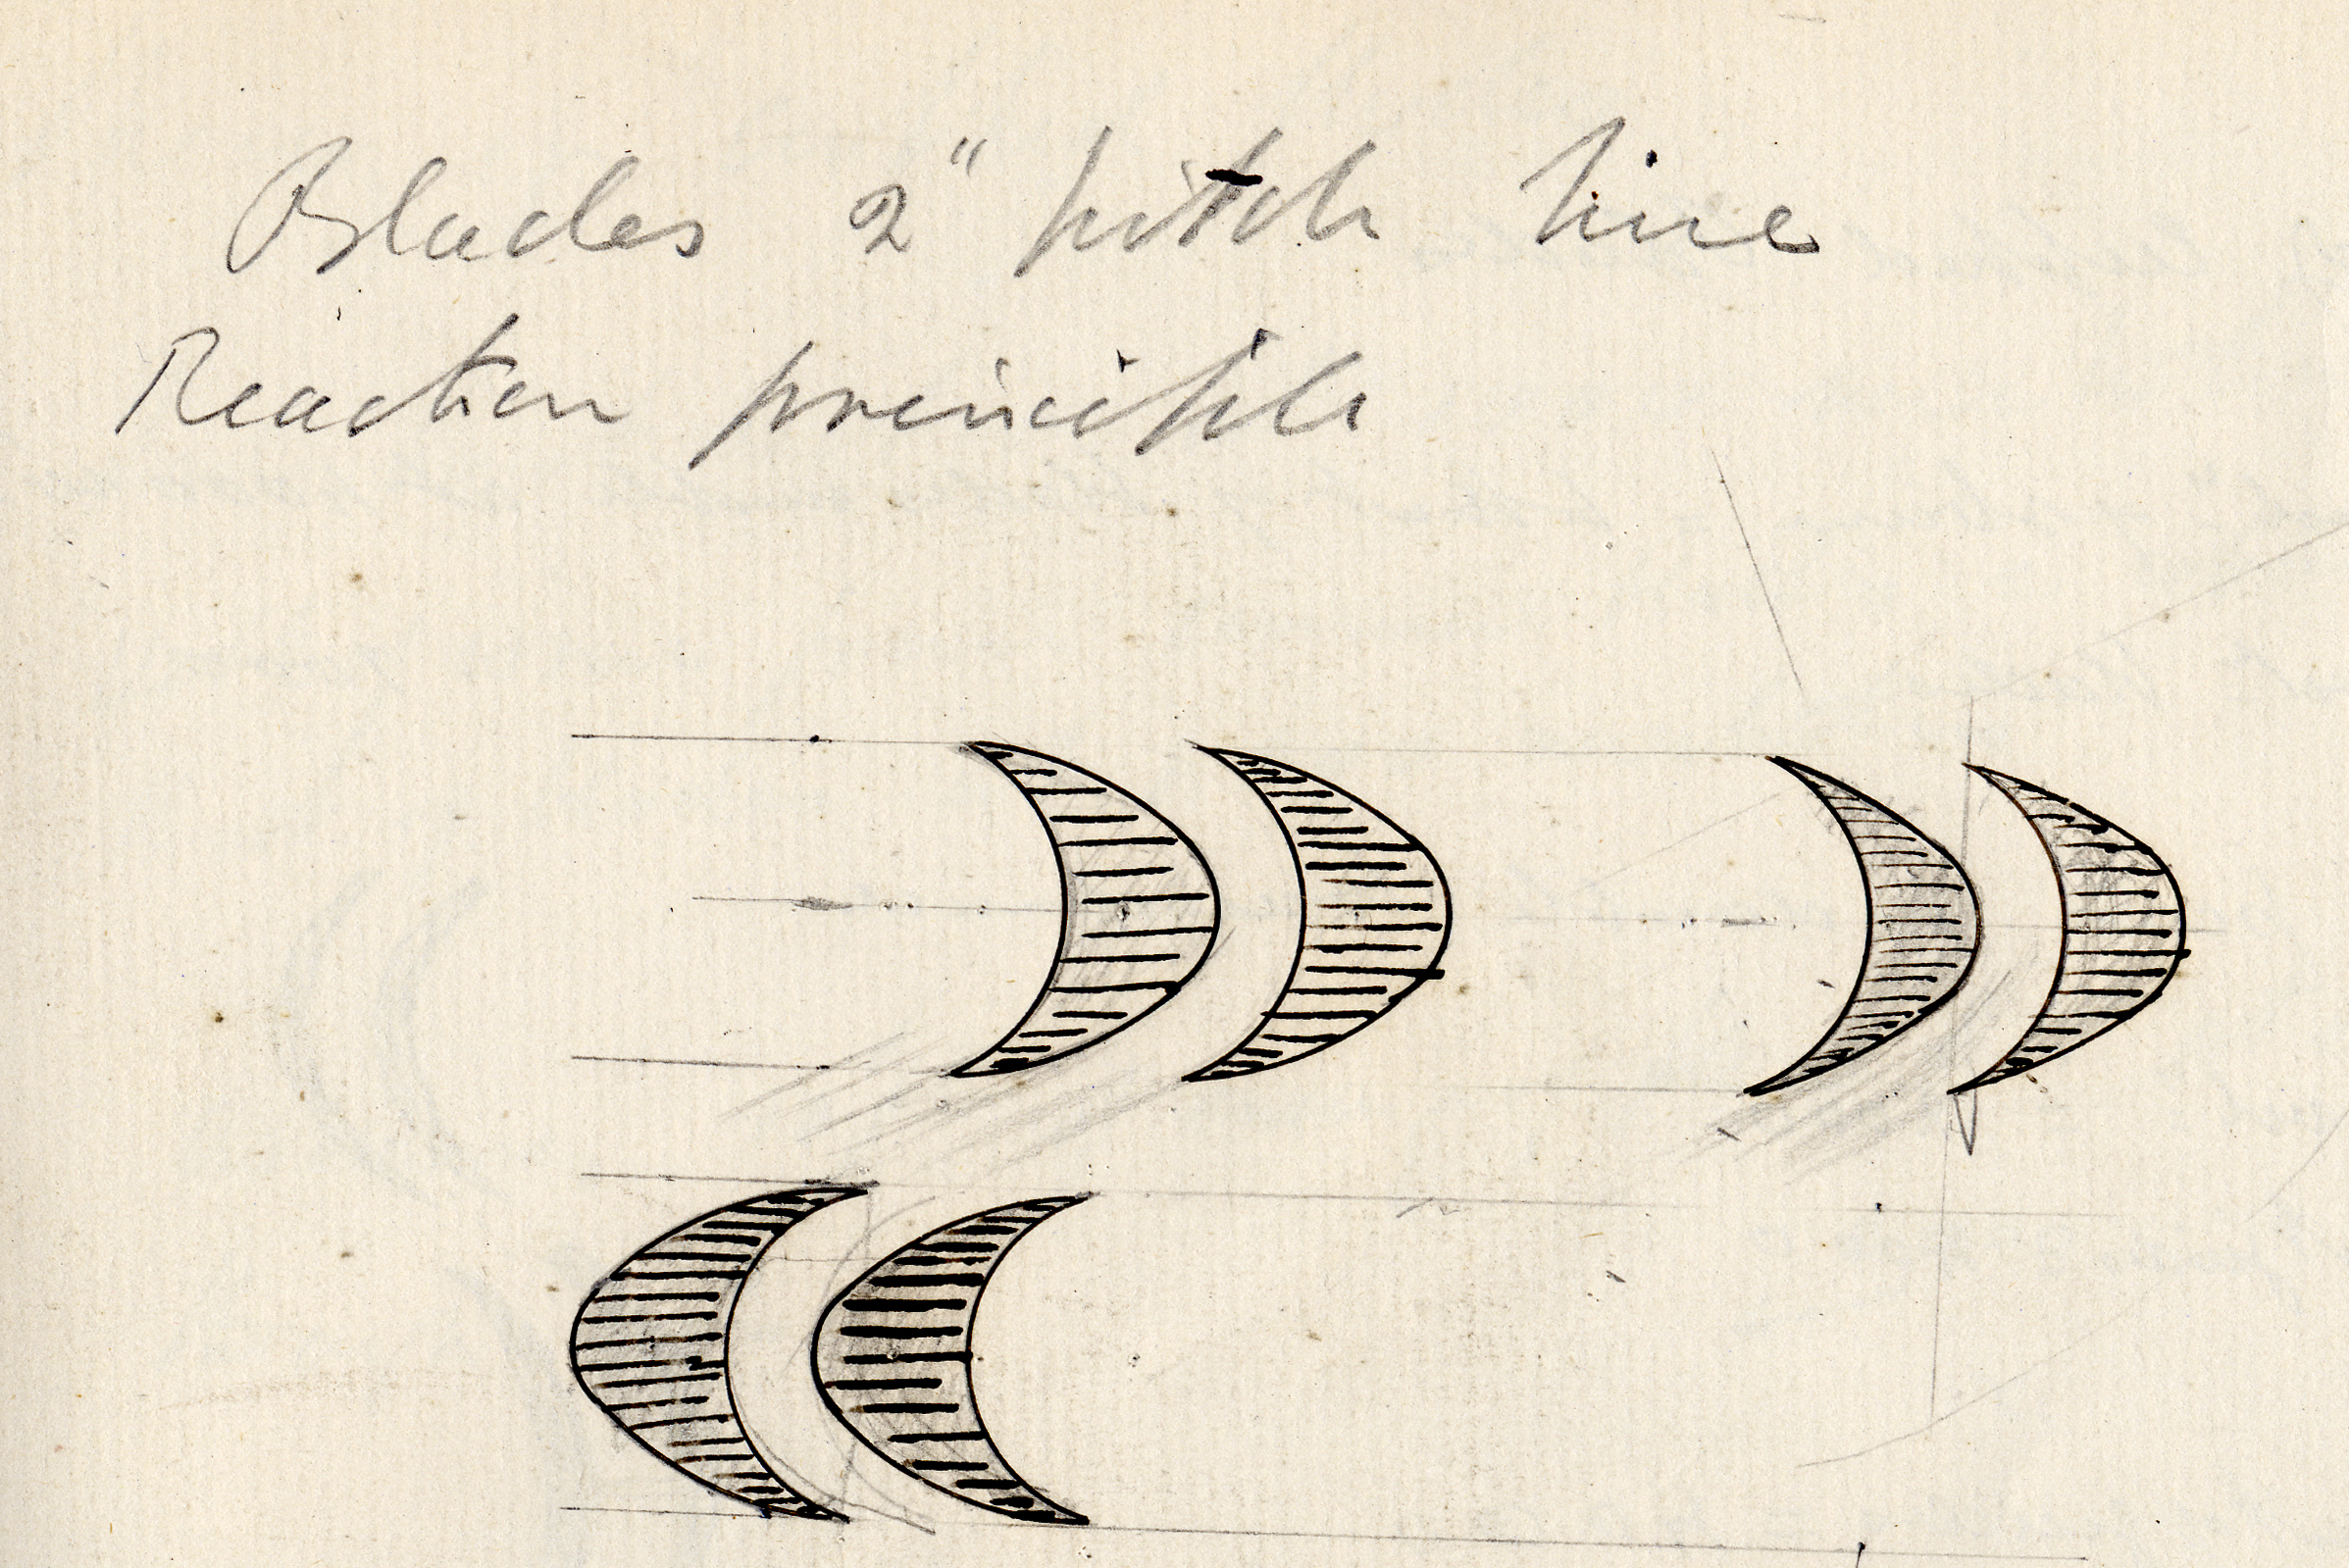 Blades 2" pitch line
Reaction principle